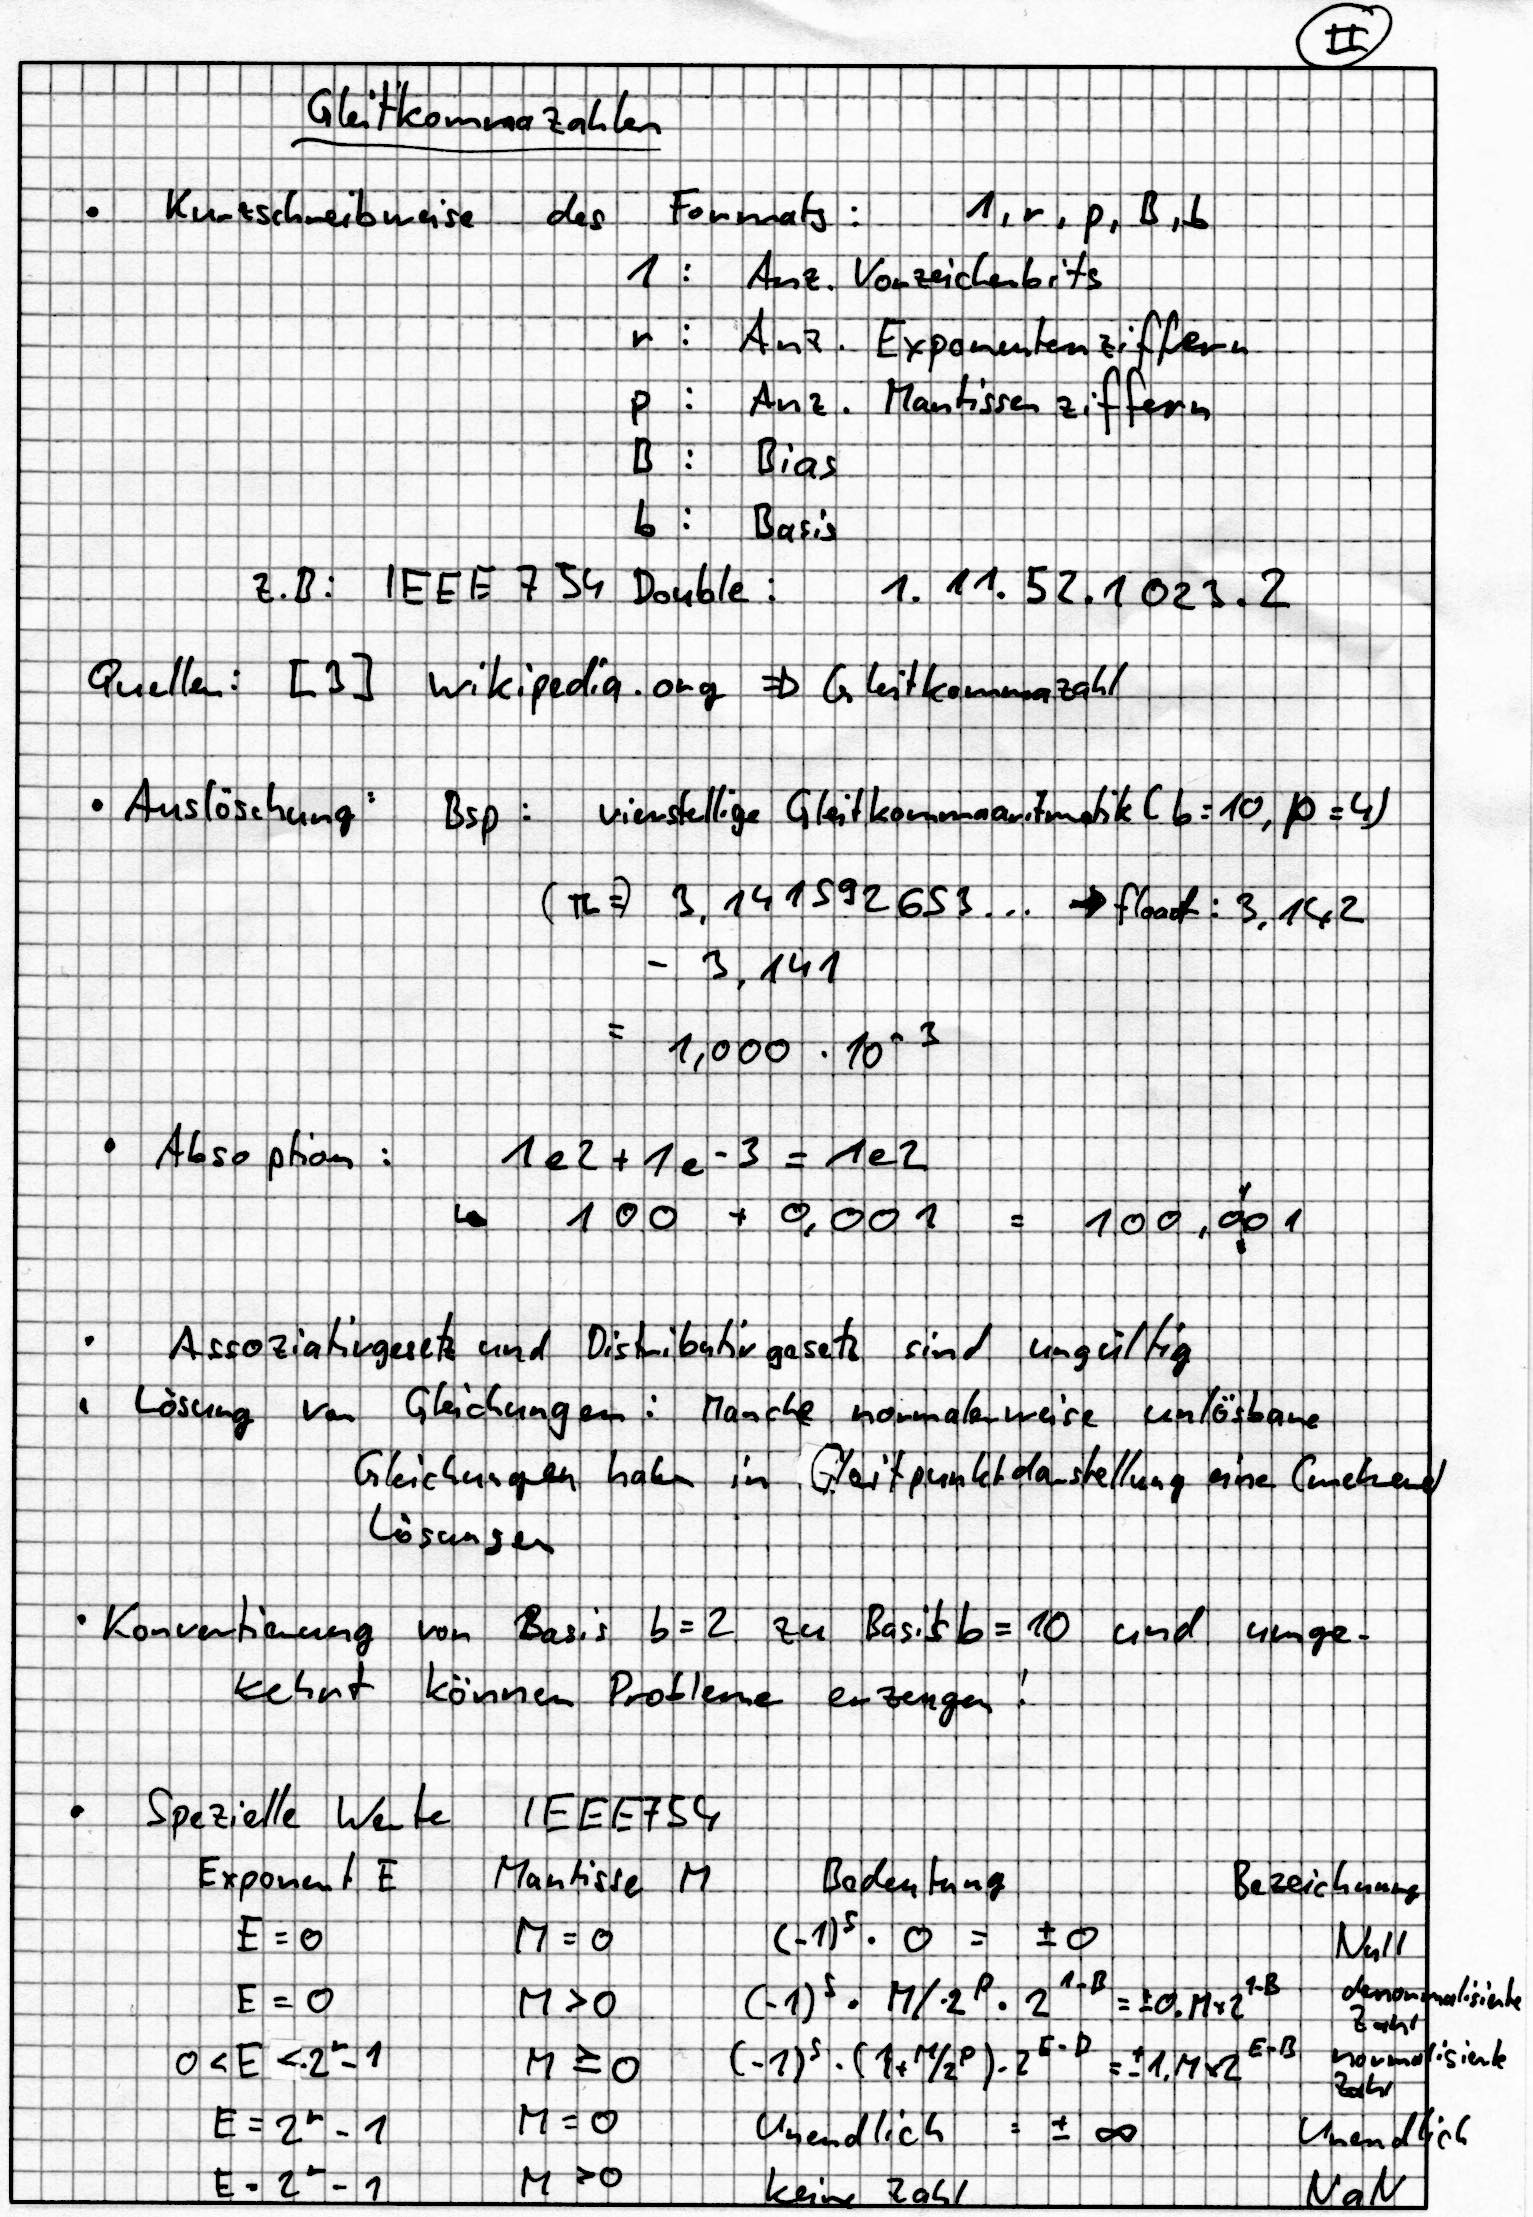 II
Gleitkommazahlen
• Kurzschreibweise des Formats: 1, r, p, B, b
1 : Anz. Vorzeichenbits
r : Anz. Exponentenziffern
p : Anz. Mantissenziffern
B : Bias
b : Basis
z.B: IEEE 754 Double: 1.11.52.1023.2
Quellen: [3] wikipedia.org ⇒ Gleitkommazahl
• Auslöschung: Bsp: vierstellige Gleitkommaaritmetik (b=10, p=4)
(π=) 3,141592653... → float: 3,142
- 3,141
= 1,000 · 10^-3
• Absoption: 1e2 + 1e-3 = 1e2
↳ 100 + 0,001 = 100,001
• Assoziativgesetz und Distributivgesetz sind ungültig
• Lösung von Gleichungen: Manche normalerweise unlösbare
Gleichungen haben in Gleitpunktdarstellung eine (mehrere)
Lösungen
• Konvertierung von Basis b=2 zu Basis b=10 und umge-
kehrt können Probleme erzeugen!
• Spezielle Werte IEEE754
Exponent E Mantisse M Bedeutung Bezeichnung
E=0 M=0 (-1)^S · 0 = ±0 Null
E=0 M>0 (-1)^S · M/2^p · 2^1-B = ±0.M×2^1-B denormalisierte Zahl
0<E<2^r-1 M≥0 (-1)^S · (1+M/2^p) · 2^E-B = ±1.M×2^E-B normalisierte Zahl
E=2^r-1 M=0 Unendlich = ±∞ Unendlich
E=2^r-1 M>0 keine Zahl NaN